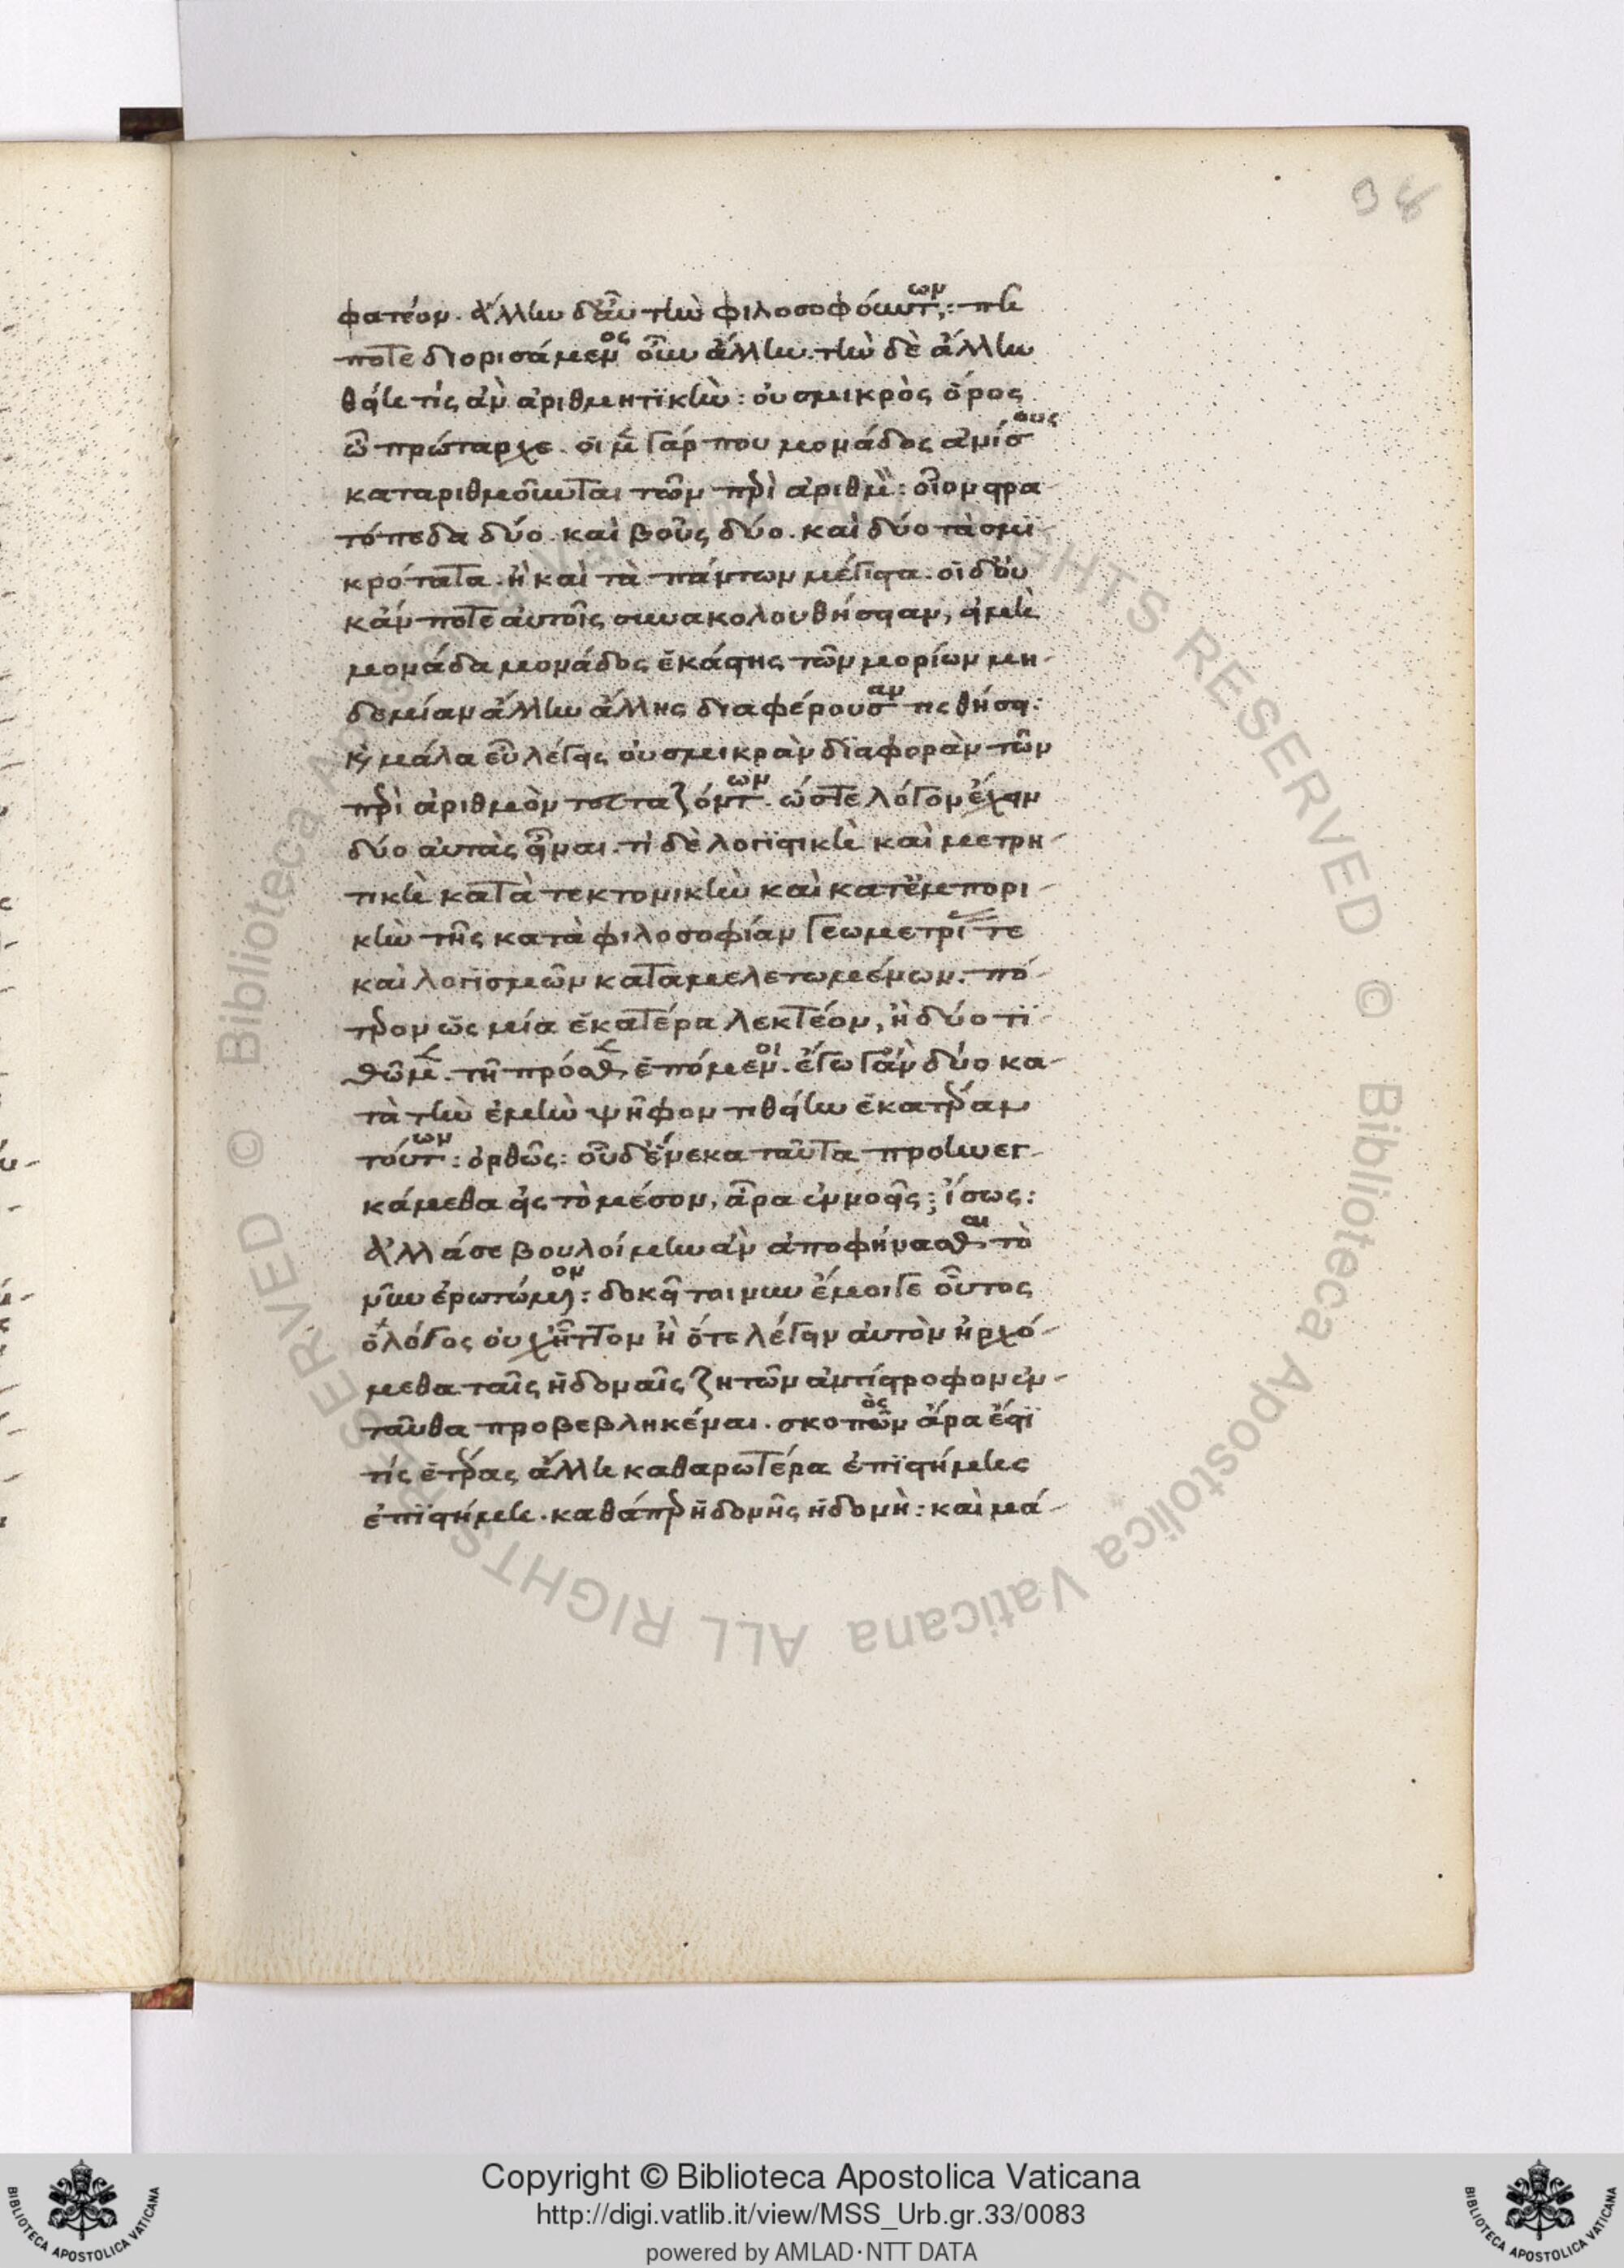 38
φατέον. ἄλλην δ' αὖ τὴν φιλοσοφούντων: πῆ
ποτε διορισάμενος οὖν ἄλλην. τὴν δὲ ἄλλην
θείη τίς ἂν ἀριθμητικήν: οὐ σμικρὸς ὅρος
ὦ πρώταρχε. οἱ μὲν γάρ που μονάδας ἀνίσους
καταριθμοῦνται τῶν περὶ ἀριθμὸν: οἷον στρα
τόπεδα δύο. καὶ βοῦς δύο. καὶ δύο τὰ σμι
κρότατα. ἢ καὶ τὰ πάντων μέγιστα. οἱ δ' οὐ
κἄν ποτε αὐτοῖς συνακολουθήσειαν, εἰ μὴ
μονάδα μονάδος ἑκάστης τῶν μορίων μη
δεμίαν ἄλλην ἄλλης διαφέρουσαν τις θήσει:
καὶ μάλα εὖ λέγεις οὐ σμικρὰν διαφορὰν τῶν
περὶ ἀριθμὸν τευταζόντων. ὥστε λόγον ἔχειν
δύο αὐτὰς εἶναι. τί δὲ λογιστικὴ καὶ μετρη
τικὴ κατὰ τεκτονικὴν καὶ κατ' ἐμπορι
κὴν τῆς κατὰ φιλοσοφίαν γεωμετρίας τε
καὶ λογισμῶν καταμελετωμένων. πό
τερον ὡς μία ἑκατέρα λεκτέον, ἢ δύο τι
θῶμεν. τῇ πρόσθεν ἑπόμενοι. ἔγωγ' ἂν δύο κα
τὰ τὴν ἐμὴν ψῆφον τιθείην ἑκατέραν
τούτων: ὀρθῶς: οὗ δ' ἕνεκα ταῦτα προηνεγ
κάμεθα εἰς τὸ μέσον, ἆρα ἐννοεῖς; ἴσως:
ἀλλά σε βουλοίμην ἂν ἀποφήνασθαι τὸ
νῦν ἐρωτώμενον: δοκεῖ τοίνυν ἔμοιγε οὗτος
ὁ λόγος οὐχ ἧττον ἢ ὅτε λέγειν αὐτὸν ἠρχό
μεθα ταῖς ἡδοναῖς ζητῶν ἀντίστροφον ἐν
ταῦθα προβεβληκέναι. σκοπῶν ὸς ἆρα ἐστί
τίς ἑτέρας ἄλλη καθαρωτέρα ἐπιστήμης
ἐπιστήμη. καθάπερ ἡδονῆς ἡδονή: καὶ μά
Copyright © Biblioteca Apostolica Vaticana
http://digi.vatlib.it/view/MSS_Urb.gr.33/0083
powered by AMLAD·NTT DATA